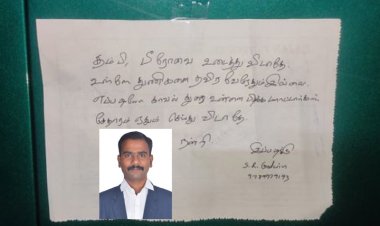 தம்பி, பீரோவை உடைத்து விடாதே
உள்ளே துணிகளை தவிர வேறேதும் இல்லை.
எப்படியோ காவல் துறை உன்னை பிடிக்க மாட்டார்கள்.
சேதாரம் ஏதும் செய்து விடாதே
நன்றி
இப்படிக்கு
S. R.